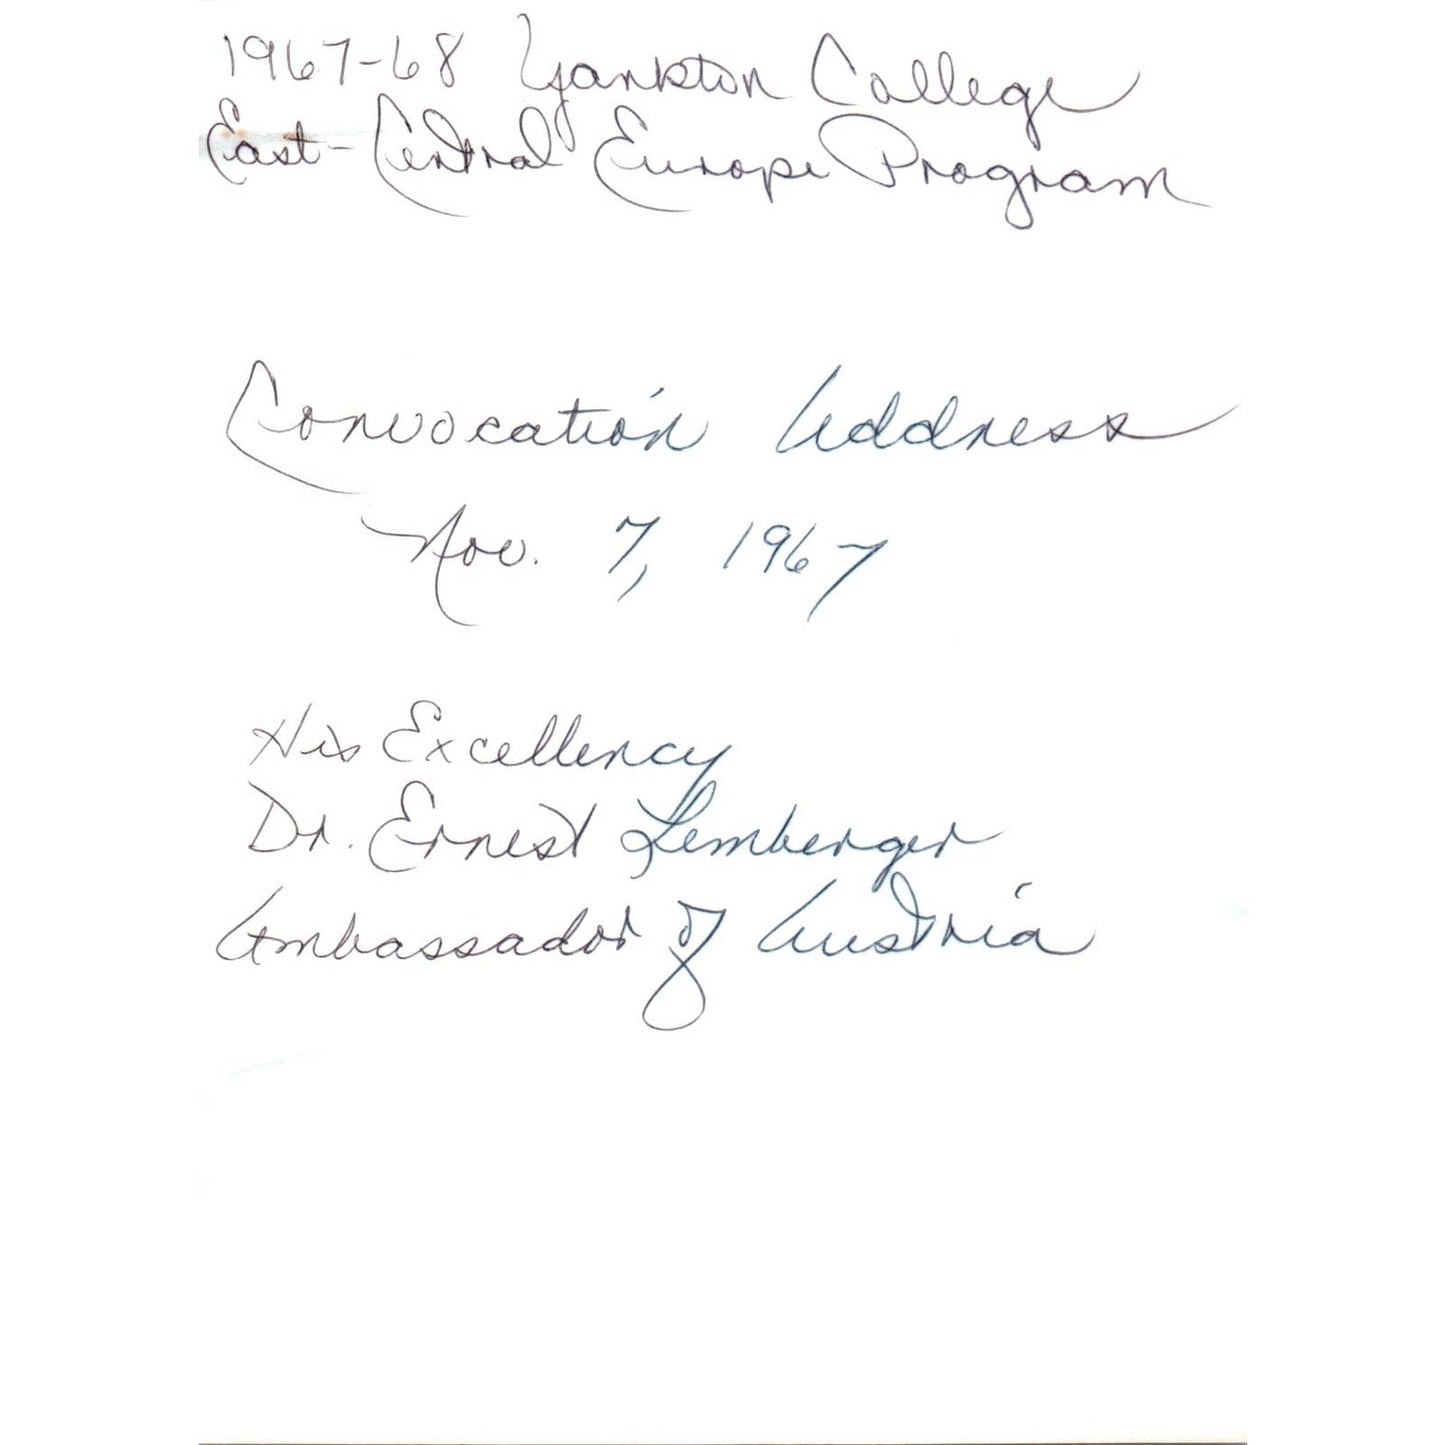 1967-68 Yankton College
East-Central Europe Program
Convocation Address
Nov. 7, 1967
His Excellency
Dr. Ernest Lemberger
Ambassador of Austria